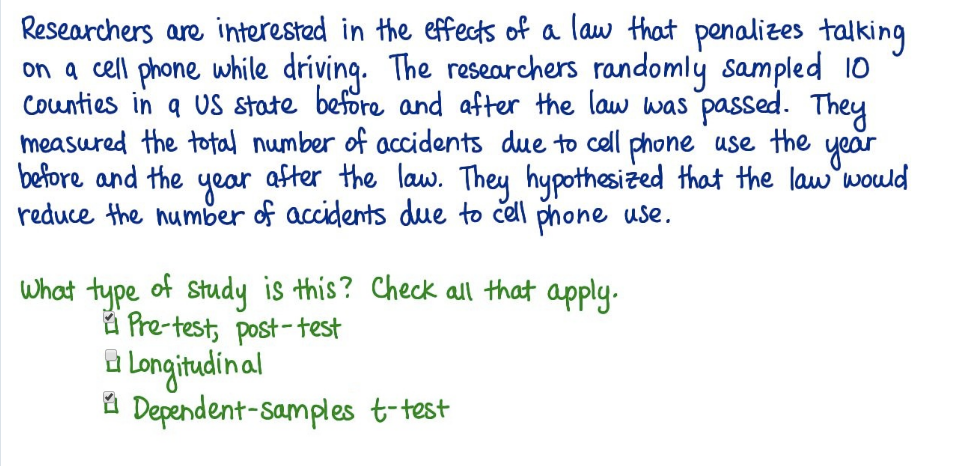 Researchers are interested in the effects of a law that penalizes talking
on a cell phone while driving. The researchers randomly sampled 10
Counties in a US state before and after the law was passed. They
measured the total number of accidents due to cell phone use the year
before and the year after the law. They hypothesized that the law would
reduce the number of accidents due to cell phone use.
What type of study is this? Check all that apply.
Pre-test, post-test
Longitudinal
Dependent-samples t-test